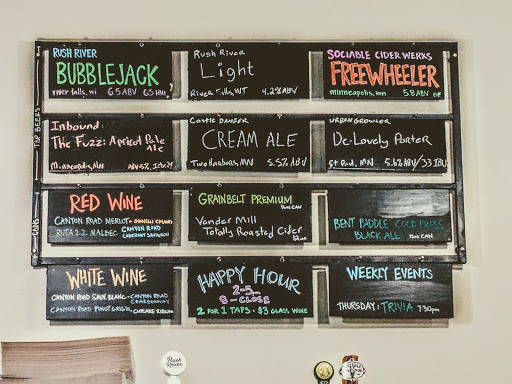 TAP BEERS
RUSH RIVER
BUBBLEJACK
river falls, wi 6.5 ABV 65 IBU
Rush River
Light
River Falls, WI 4.2% ABV
SOCIABLE CIDER WERKS
FREEWHEELER
minneapolis, mn 5.8 ABV GF
Inbound
The Fuzz: Apricot Pale Ale
Minneapolis, MN ABV 5%
Castle Danger
CREAM ALE
Two Harbors, MN 5.5% ABV
URBAN GROWLER
De-Lovely Porter
St. Paul, MN 5.6% ABV/33 IBU
CANS
RED WINE
CANYON ROAD MERLOT
RUTA 22 MALBEC CANYON ROAD
CABERNET SAUVIGNON
GRAINBELT PREMIUM
16oz CAN
Vander Mill
Totally Roasted Cider
BENT PADDLE COLD PRESS
BLACK ALE 12oz CAN
WHITE WINE
CANYON ROAD SAUV. BLANC CANYON ROAD
CHARDONNAY
CANYON ROAD PINOT GRIGIO CUPCAKE RIESLING
HAPPY HOUR
2-5pm
8-CLOSE
2 FOR 1 TAPS · $3 GLASS WINE
WEEKLY EVENTS
THURSDAY: TRIVIA 7:30pm
Rush River